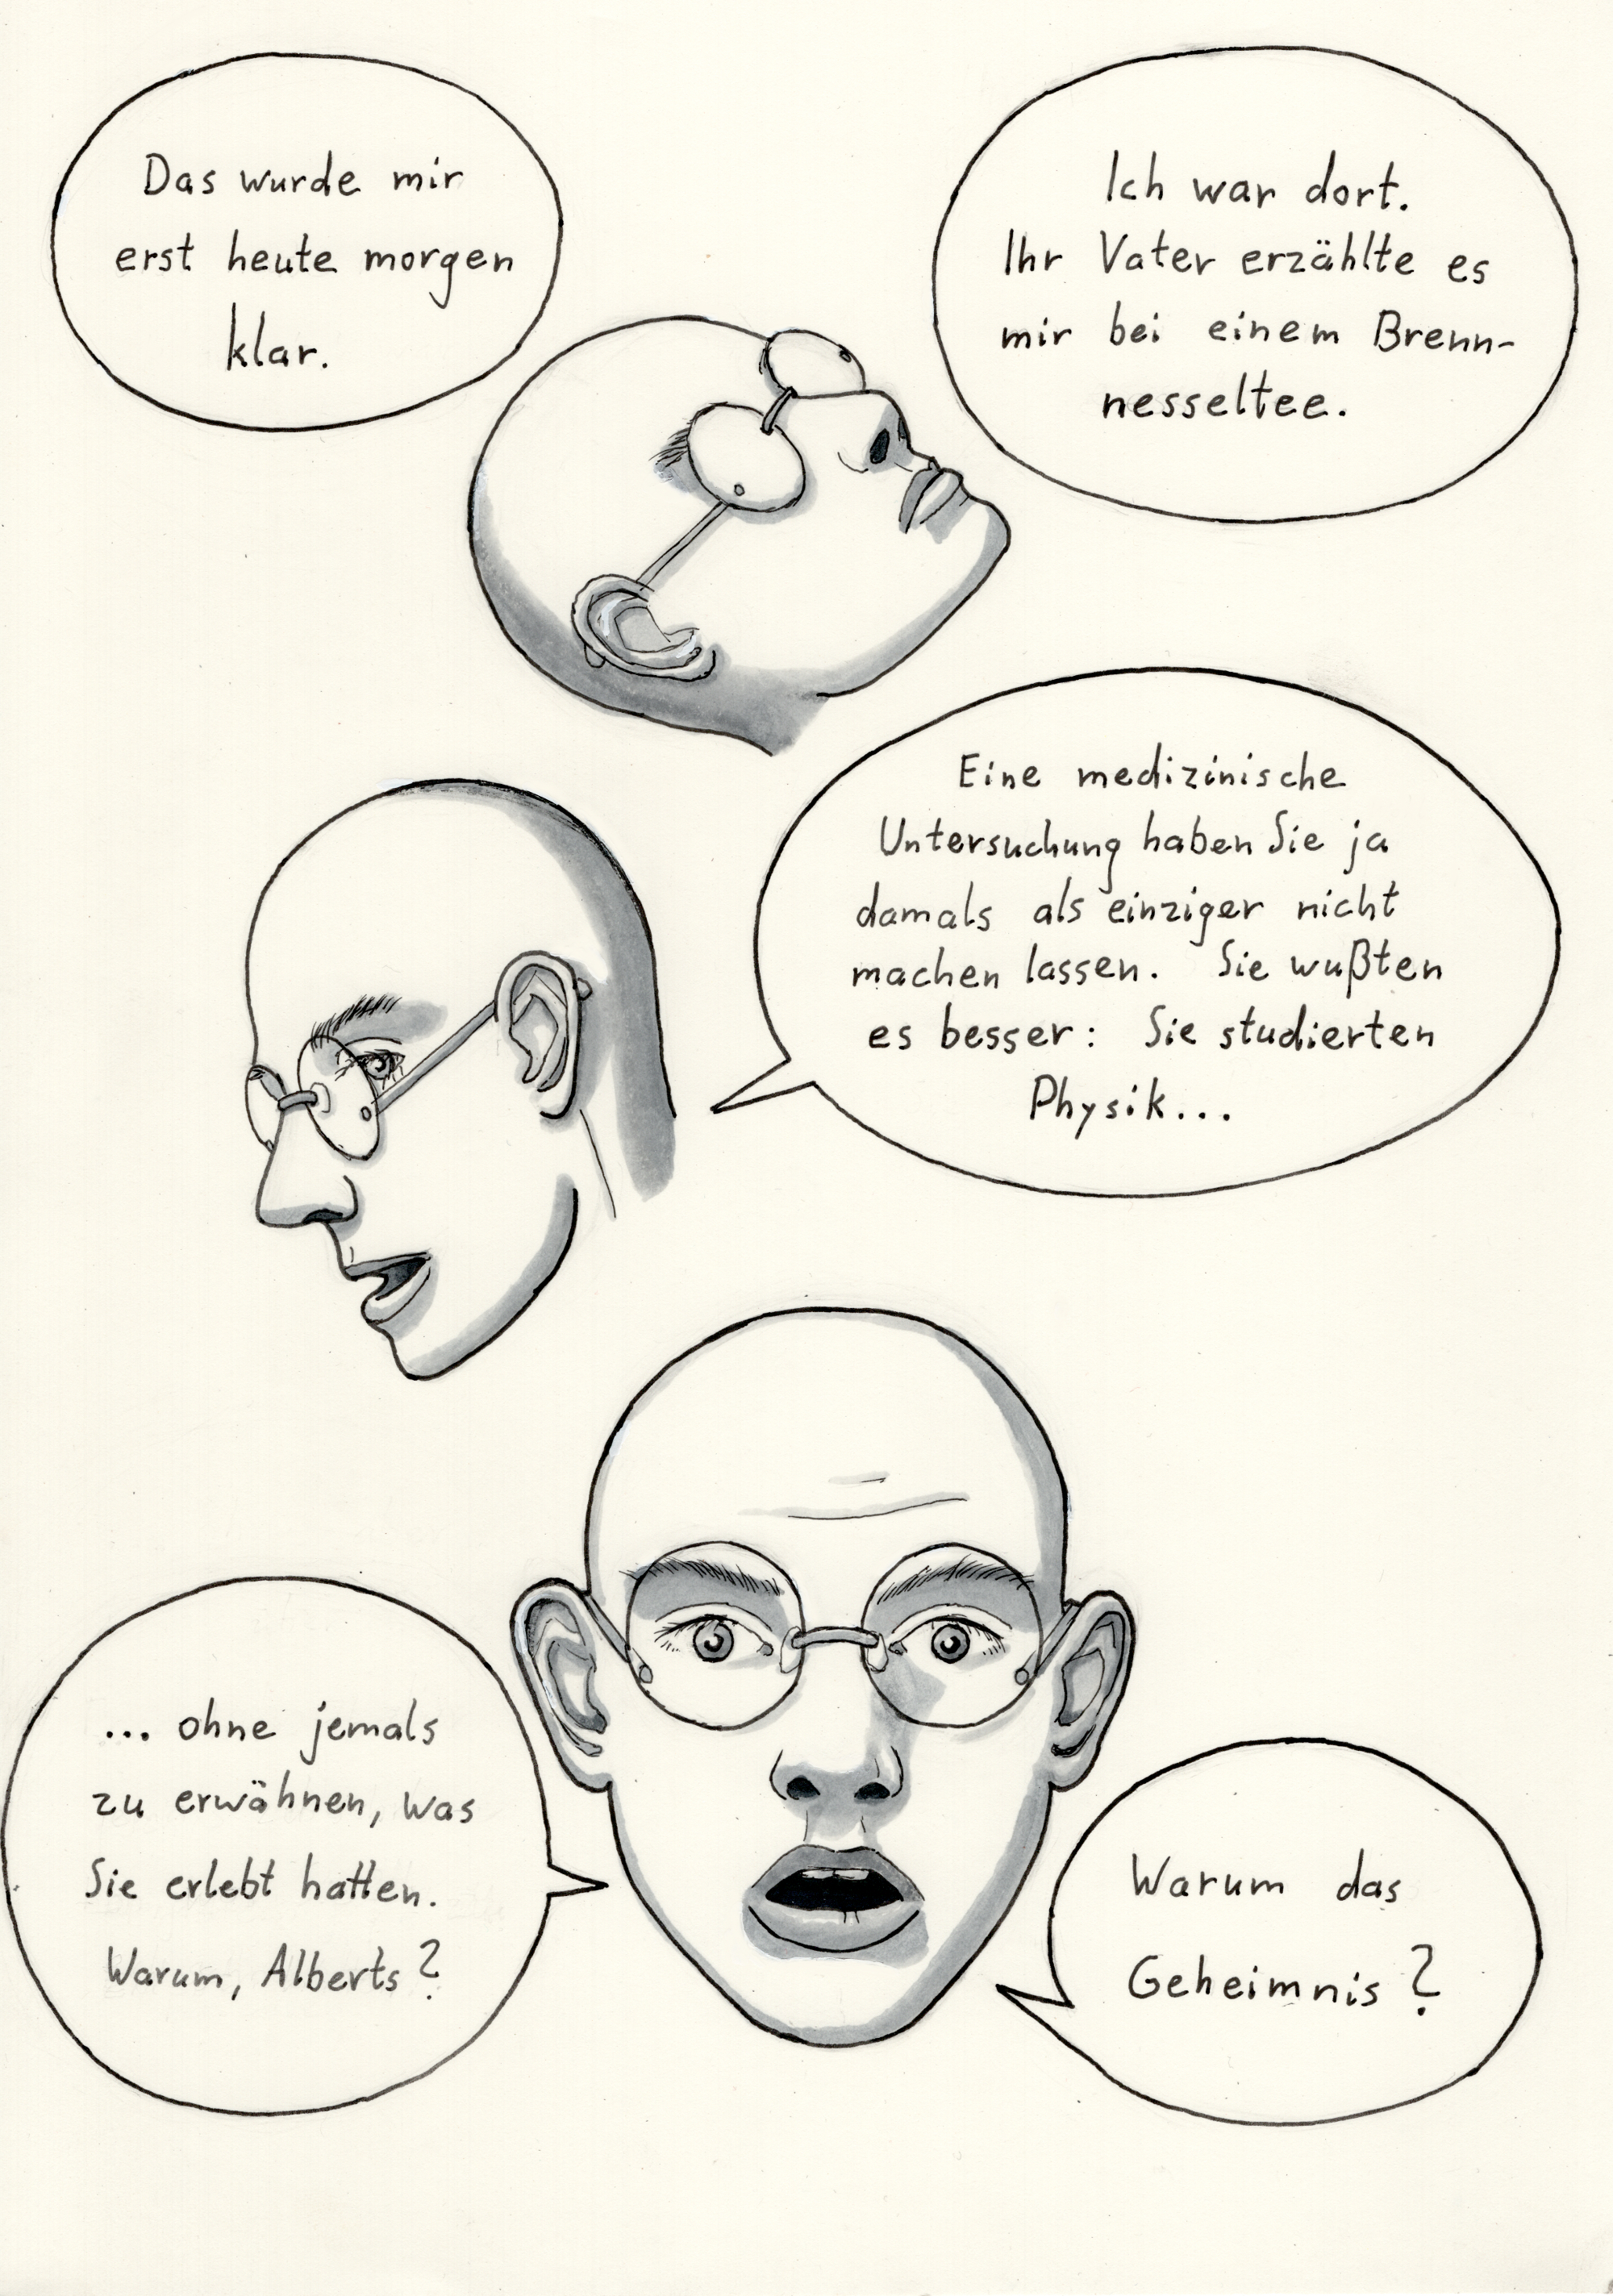 Das wurde mir
erst heute morgen
klar.
Ich war dort.
Ihr Vater erzählte es
mir bei einem Brenn-
nesseltee.
Eine medizinische
Untersuchung haben Sie ja
damals als einziger nicht
machen lassen. Sie wußten
es besser: Sie studierten
Physik...
... ohne jemals
zu erwähnen, was
Sie erlebt hatten.
Warum, Alberts?
Warum das
Geheimnis?